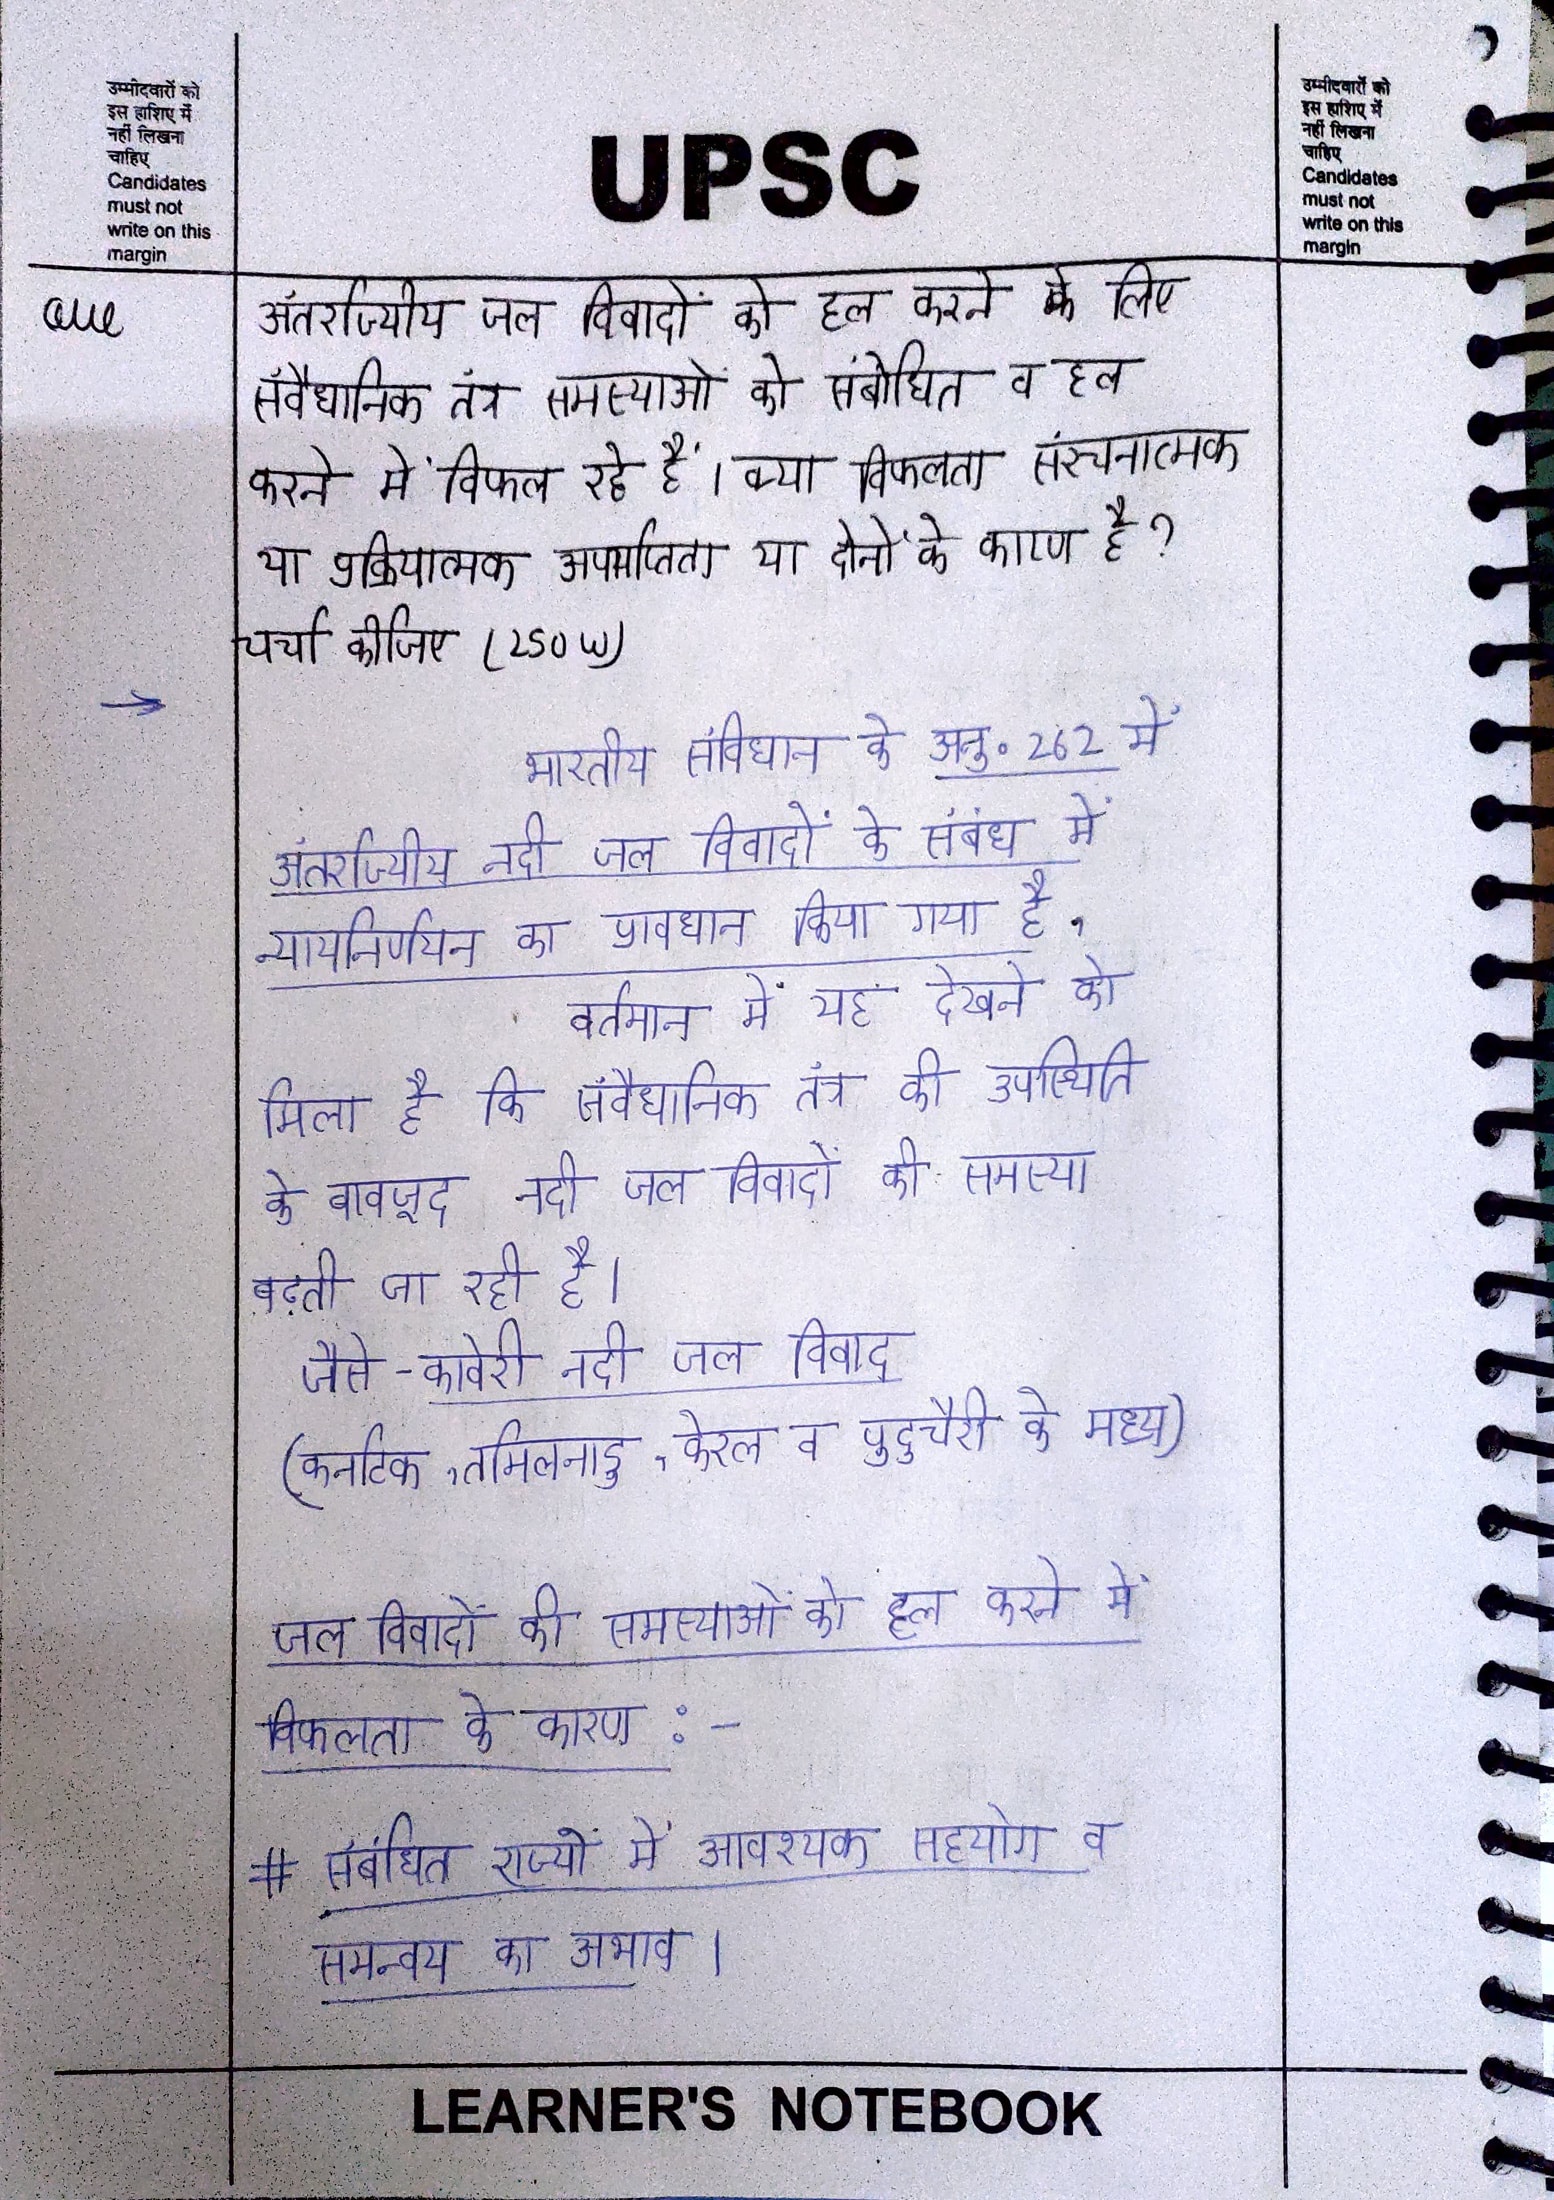 उम्मीदवारों को
इस हाशिए में
नहीं लिखना
चाहिए
Candidates
must not
write on this
margin
UPSC
उम्मीदवारों को
इस हाशिए में
नहीं लिखना
चाहिए
Candidates
must not
write on this
margin
Que
अंतर्राज्यीय जल विवादों को हल करने के लिए
संवैधानिक तंत्र समस्याओं को संबोधित व हल
करने में विफल रहे हैं। क्या विफलता संरचनात्मक
या प्रक्रियात्मक अपर्याप्तता या दोनों के कारण है?
चर्चा कीजिए (250 W)
→
भारतीय संविधान के अनु॰ 262 में
अंतर्राज्यीय नदी जल विवादों के संबंध में
न्यायनिर्णयन का प्रावधान किया गया है,
वर्तमान में यह देखने को
मिला है कि संवैधानिक तंत्र की उपस्थिति
के बावजूद नदी जल विवादों की समस्या
बढ़ती जा रही है।
जैसे - कावेरी नदी जल विवाद
(कर्नाटक, तमिलनाडु, केरल व पुदुचैरी के मध्य)
जल विवादों की समस्याओं को हल करने में
विफलता के कारण :-
# संबंधित राज्यों में आवश्यक सहयोग व
समन्वय का अभाव।
LEARNER'S NOTEBOOK